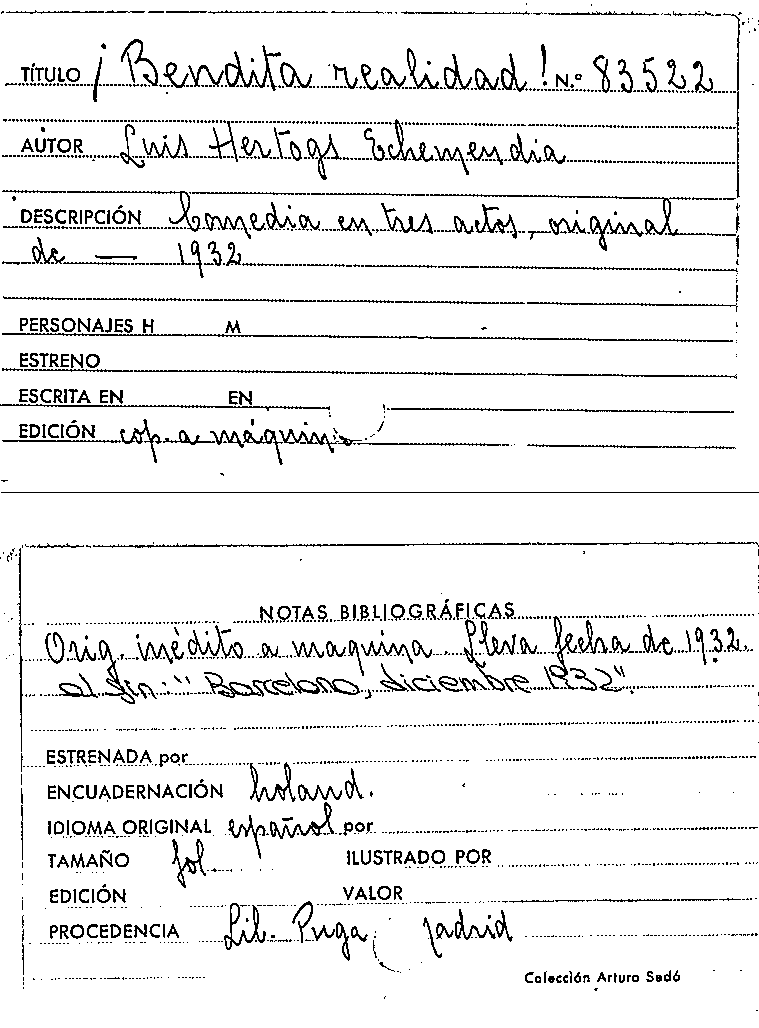 TÍTULO ¡Bendita realidad! N.º 83522
AUTOR Luis Hertogs Echemendia
DESCRIPCIÓN Comedia en tres actos, original
de — 1932
PERSONAJES H M
ESTRENO
ESCRITA EN EN
EDICIÓN cop. a máquina
NOTAS BIBLIOGRÁFICAS
Orig. inédito a maquina. Lleva fecha de 1932.
al fin: "Barcelona, diciembre 1932".
ESTRENADA por
ENCUADERNACIÓN holand.
IDIOMA ORIGINAL español por
TAMAÑO fol. ILUSTRADO POR
EDICIÓN VALOR
PROCEDENCIA Lib. Puga, Madrid
Colección Arturo Sedó